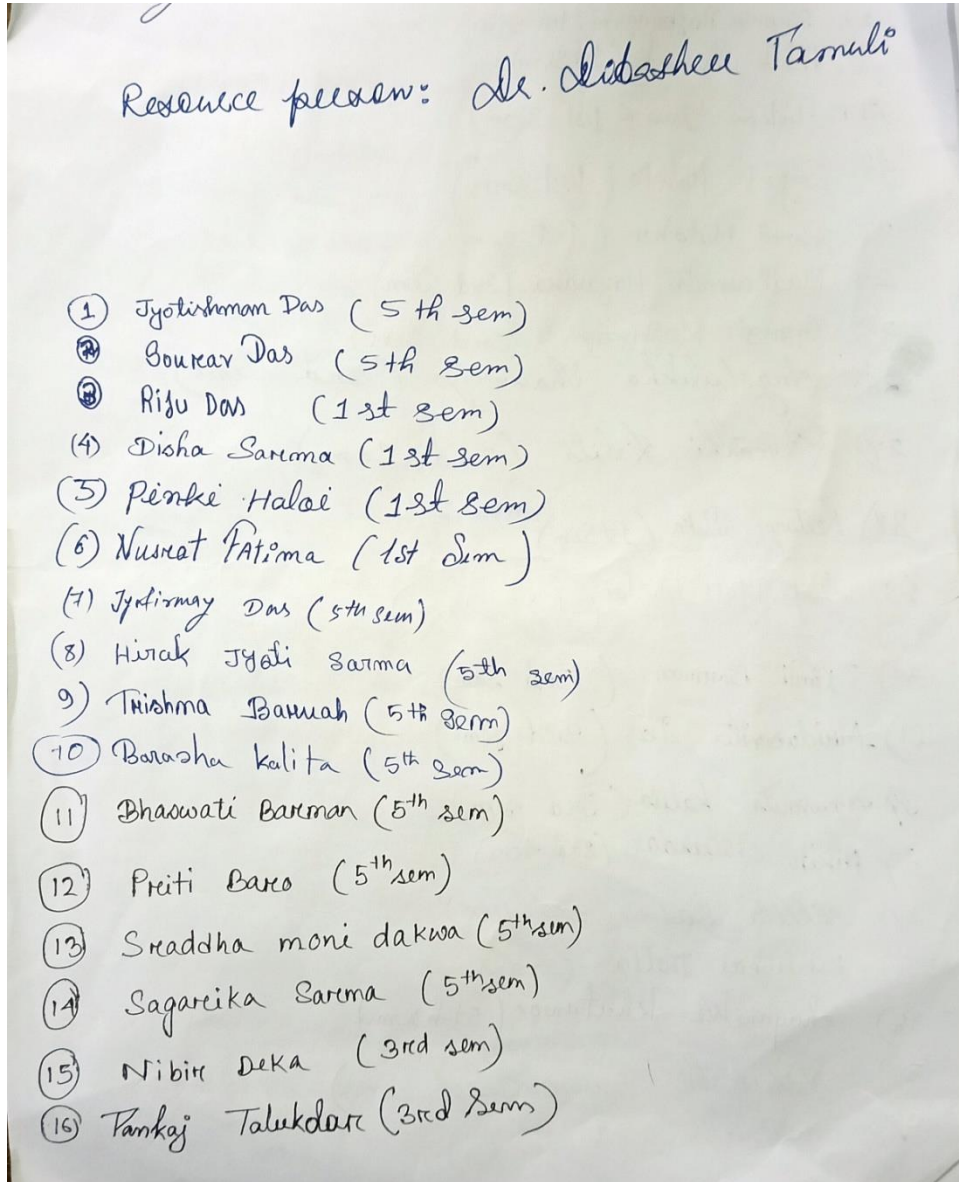 Resource person: Dr. Dibashree Tamuli
1 Jyotishman Das (5th sem)
2 Sourav Das (5th sem)
3 Riju Das (1st sem)
(4) Disha Sarma (1st sem)
(5) Pinki Haloi (1st sem)
(6) Nusrat FAtima (1st Sem)
(7) Jyotirmay Das (5th sem)
(8) Hirak Jyoti Sarma (5th sem)
9) Trishma Baruah (5th sem)
10 Barasha kalita (5th sem)
11 Bhaswati Barman (5th sem)
12 Priti Baro (5th sem)
13 Sraddha moni dakwa (5th sem)
14 Sagarika Sarma (5th sem)
15 Nibir DEKA (3rd sem)
16 Pankaj Talukdar (3rd Sem)